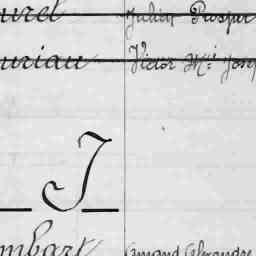 urel Julien Prosper
uriau Victor Mie Josep
J
mbart Armand Alexandre